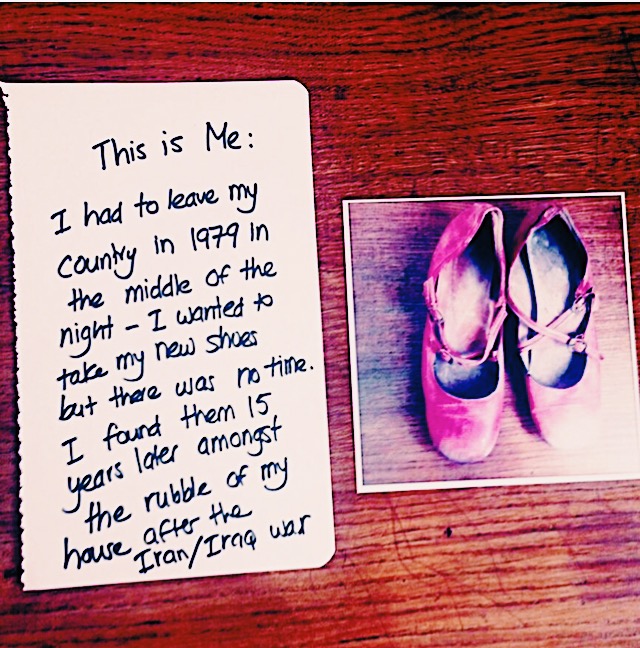 This is Me:
I had to leave my
country in 1979 in
the middle of the
night - I wanted to
take my new shoes
but there was no time.
I found them 15
years later amongst
the rubble of my
house after the
Iran/Iraq war